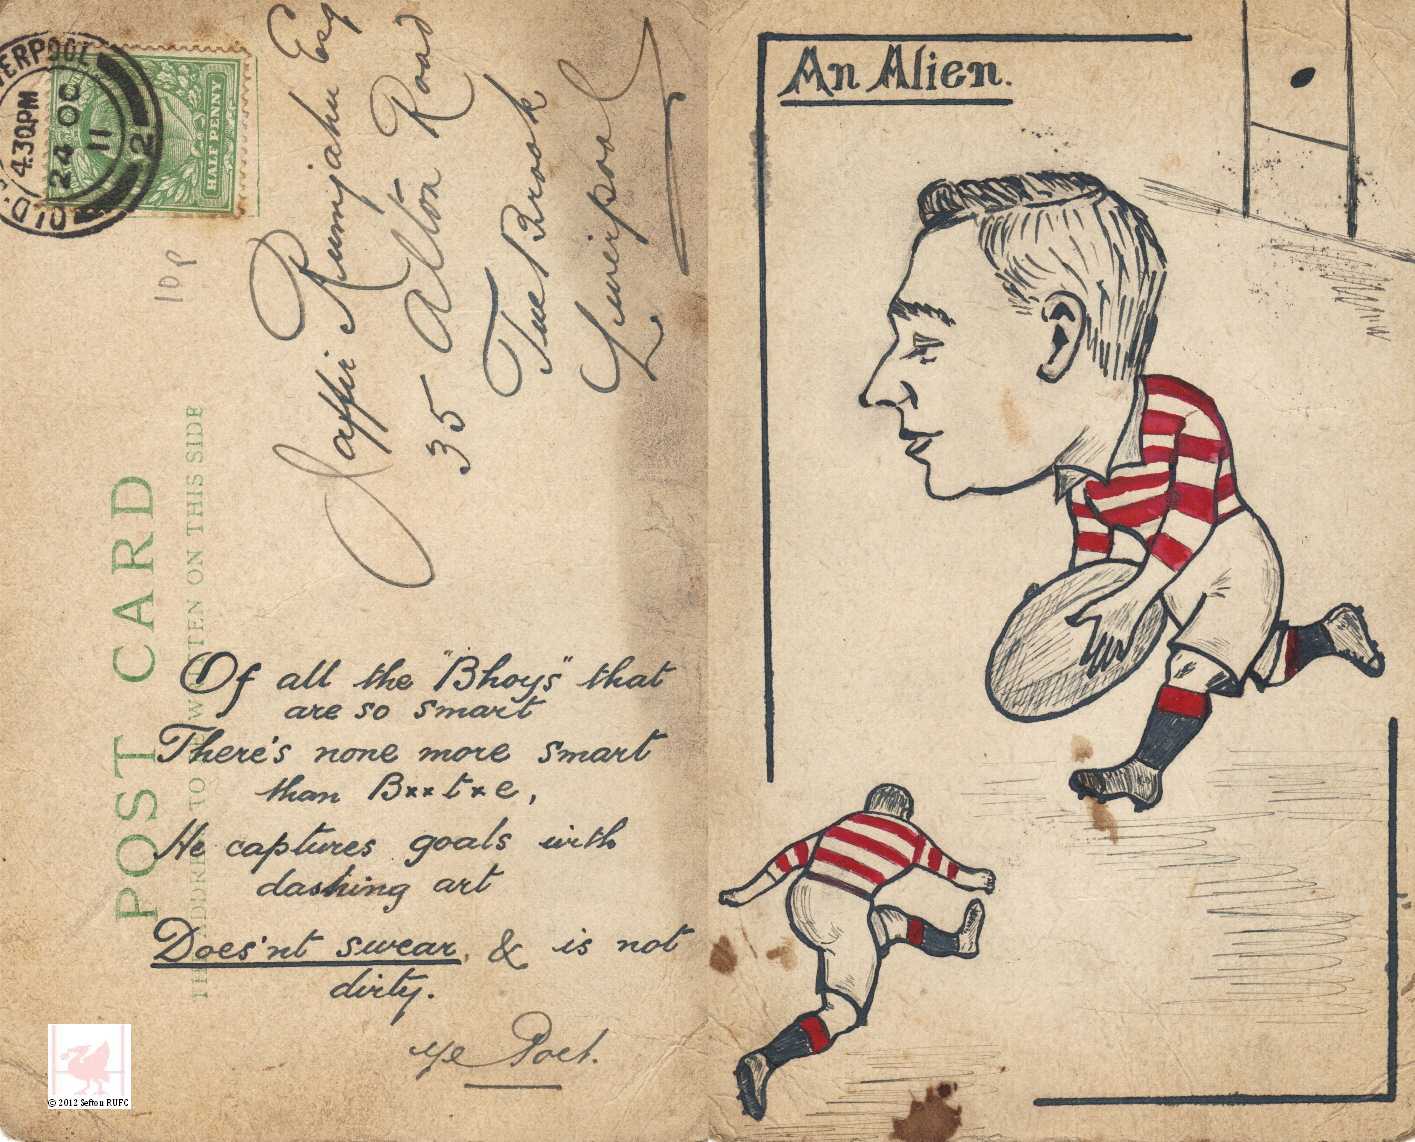 LIVERPOOL
4.30PM
24 OC
11
2
HALF PENNY
10p
Jaffir Rumjahn Esq
35 Alton Road
Tue Brook
Liverpool
POST CARD
THE ADDRESS TO BE WRITTEN ON THIS SIDE
Of all the "Bhoys" that
are so smart
There's none more smart
than B**t*e,
He captures goals with
dashing art
Does'nt swear, & is not
dirty.
ye Poet.
© 2012 Sefton RUFC
An Alien.